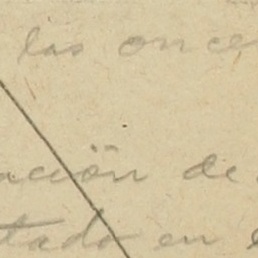 las once
ación de
tado en